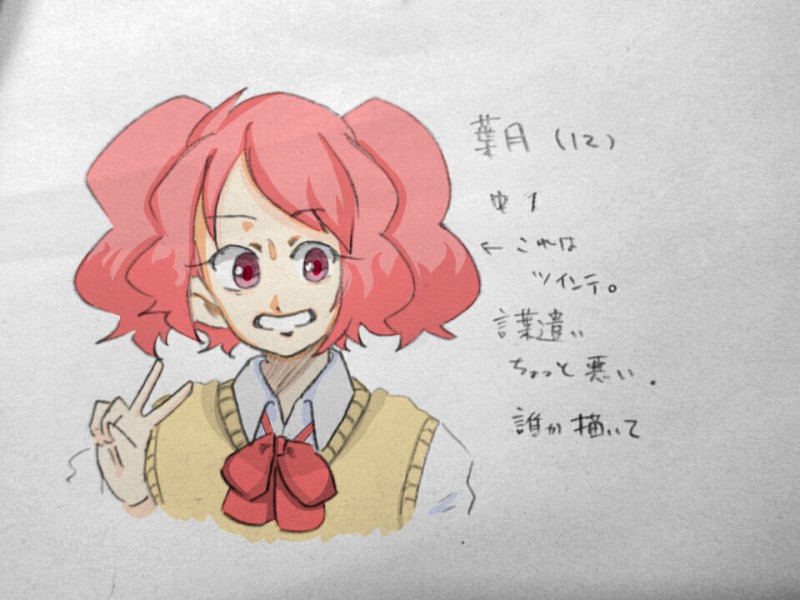 葉月(12)
中1
←これは
ツインテ。
言葉遣い
ちょっと悪い.
誰か描いて